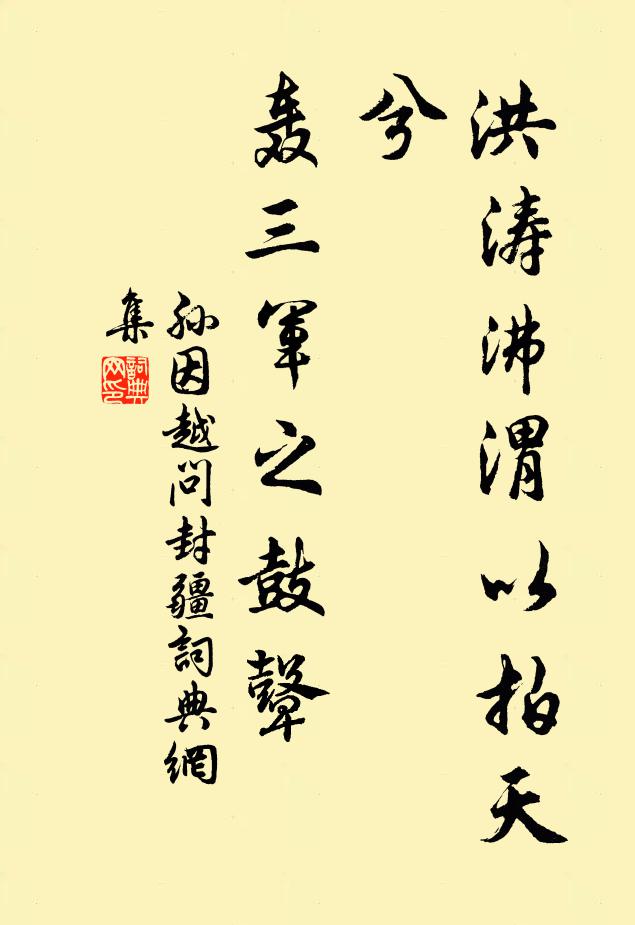 洪涛沸渭以拍天
兮
轰三军之鼓鼙
孙因越问封疆词典网
集
词典网印